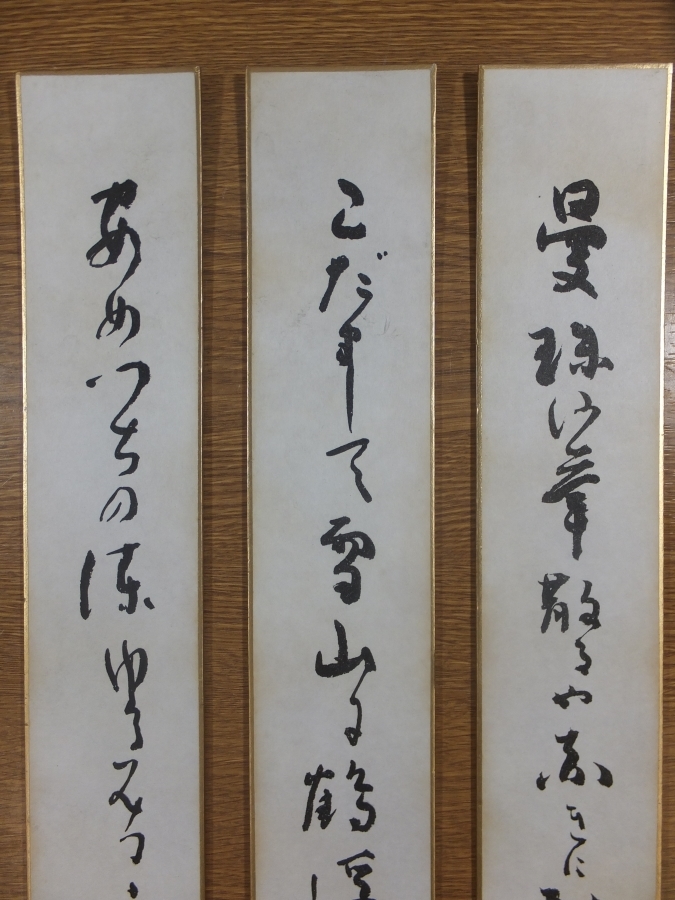 曼珠沙華散るや赤きに
こだまして雪山に鶴
あめつちの凍ゆるみつ